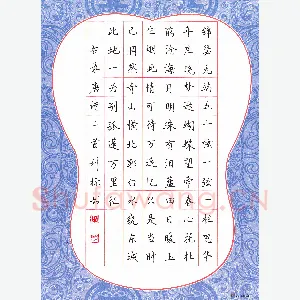 锦瑟无端五十弦一弦一柱思华
年庄生晓梦迷蝴蝶望帝春心托杜
鹃沧海月明珠有泪蓝田日暖玉
生烟此情可待成追忆只是当时
已惘然青山横北郭白水绕东城
此地一为别孤蓬万里征
Shufawang.CN